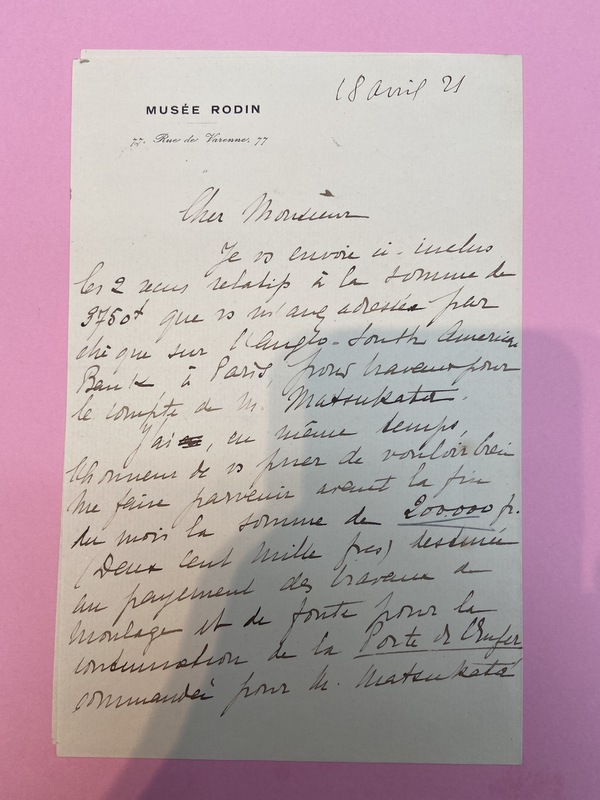 18 avril 21
MUSÉE RODIN
77. Rue de Varenne, 77
Cher Monsieur
Je vs envoie ci-inclus
les 2 reçus relatifs à la somme de
3750f que vs m'avez adressée par
chèque sur l'Anglo-South American
Bank à Paris, pour travaux pour
le compte de M. Matsukata.
J'ai, en même temps,
l'honneur de vs prier de vouloir bien
me faire parvenir avant la fin
du mois la somme de 200.000 fr.
(Deux cent mille frcs) destinée
au payement des travaux de
moulage et de fonte pour la
continuation de la Porte de l'Enfer
commandée pour M. Matsukata